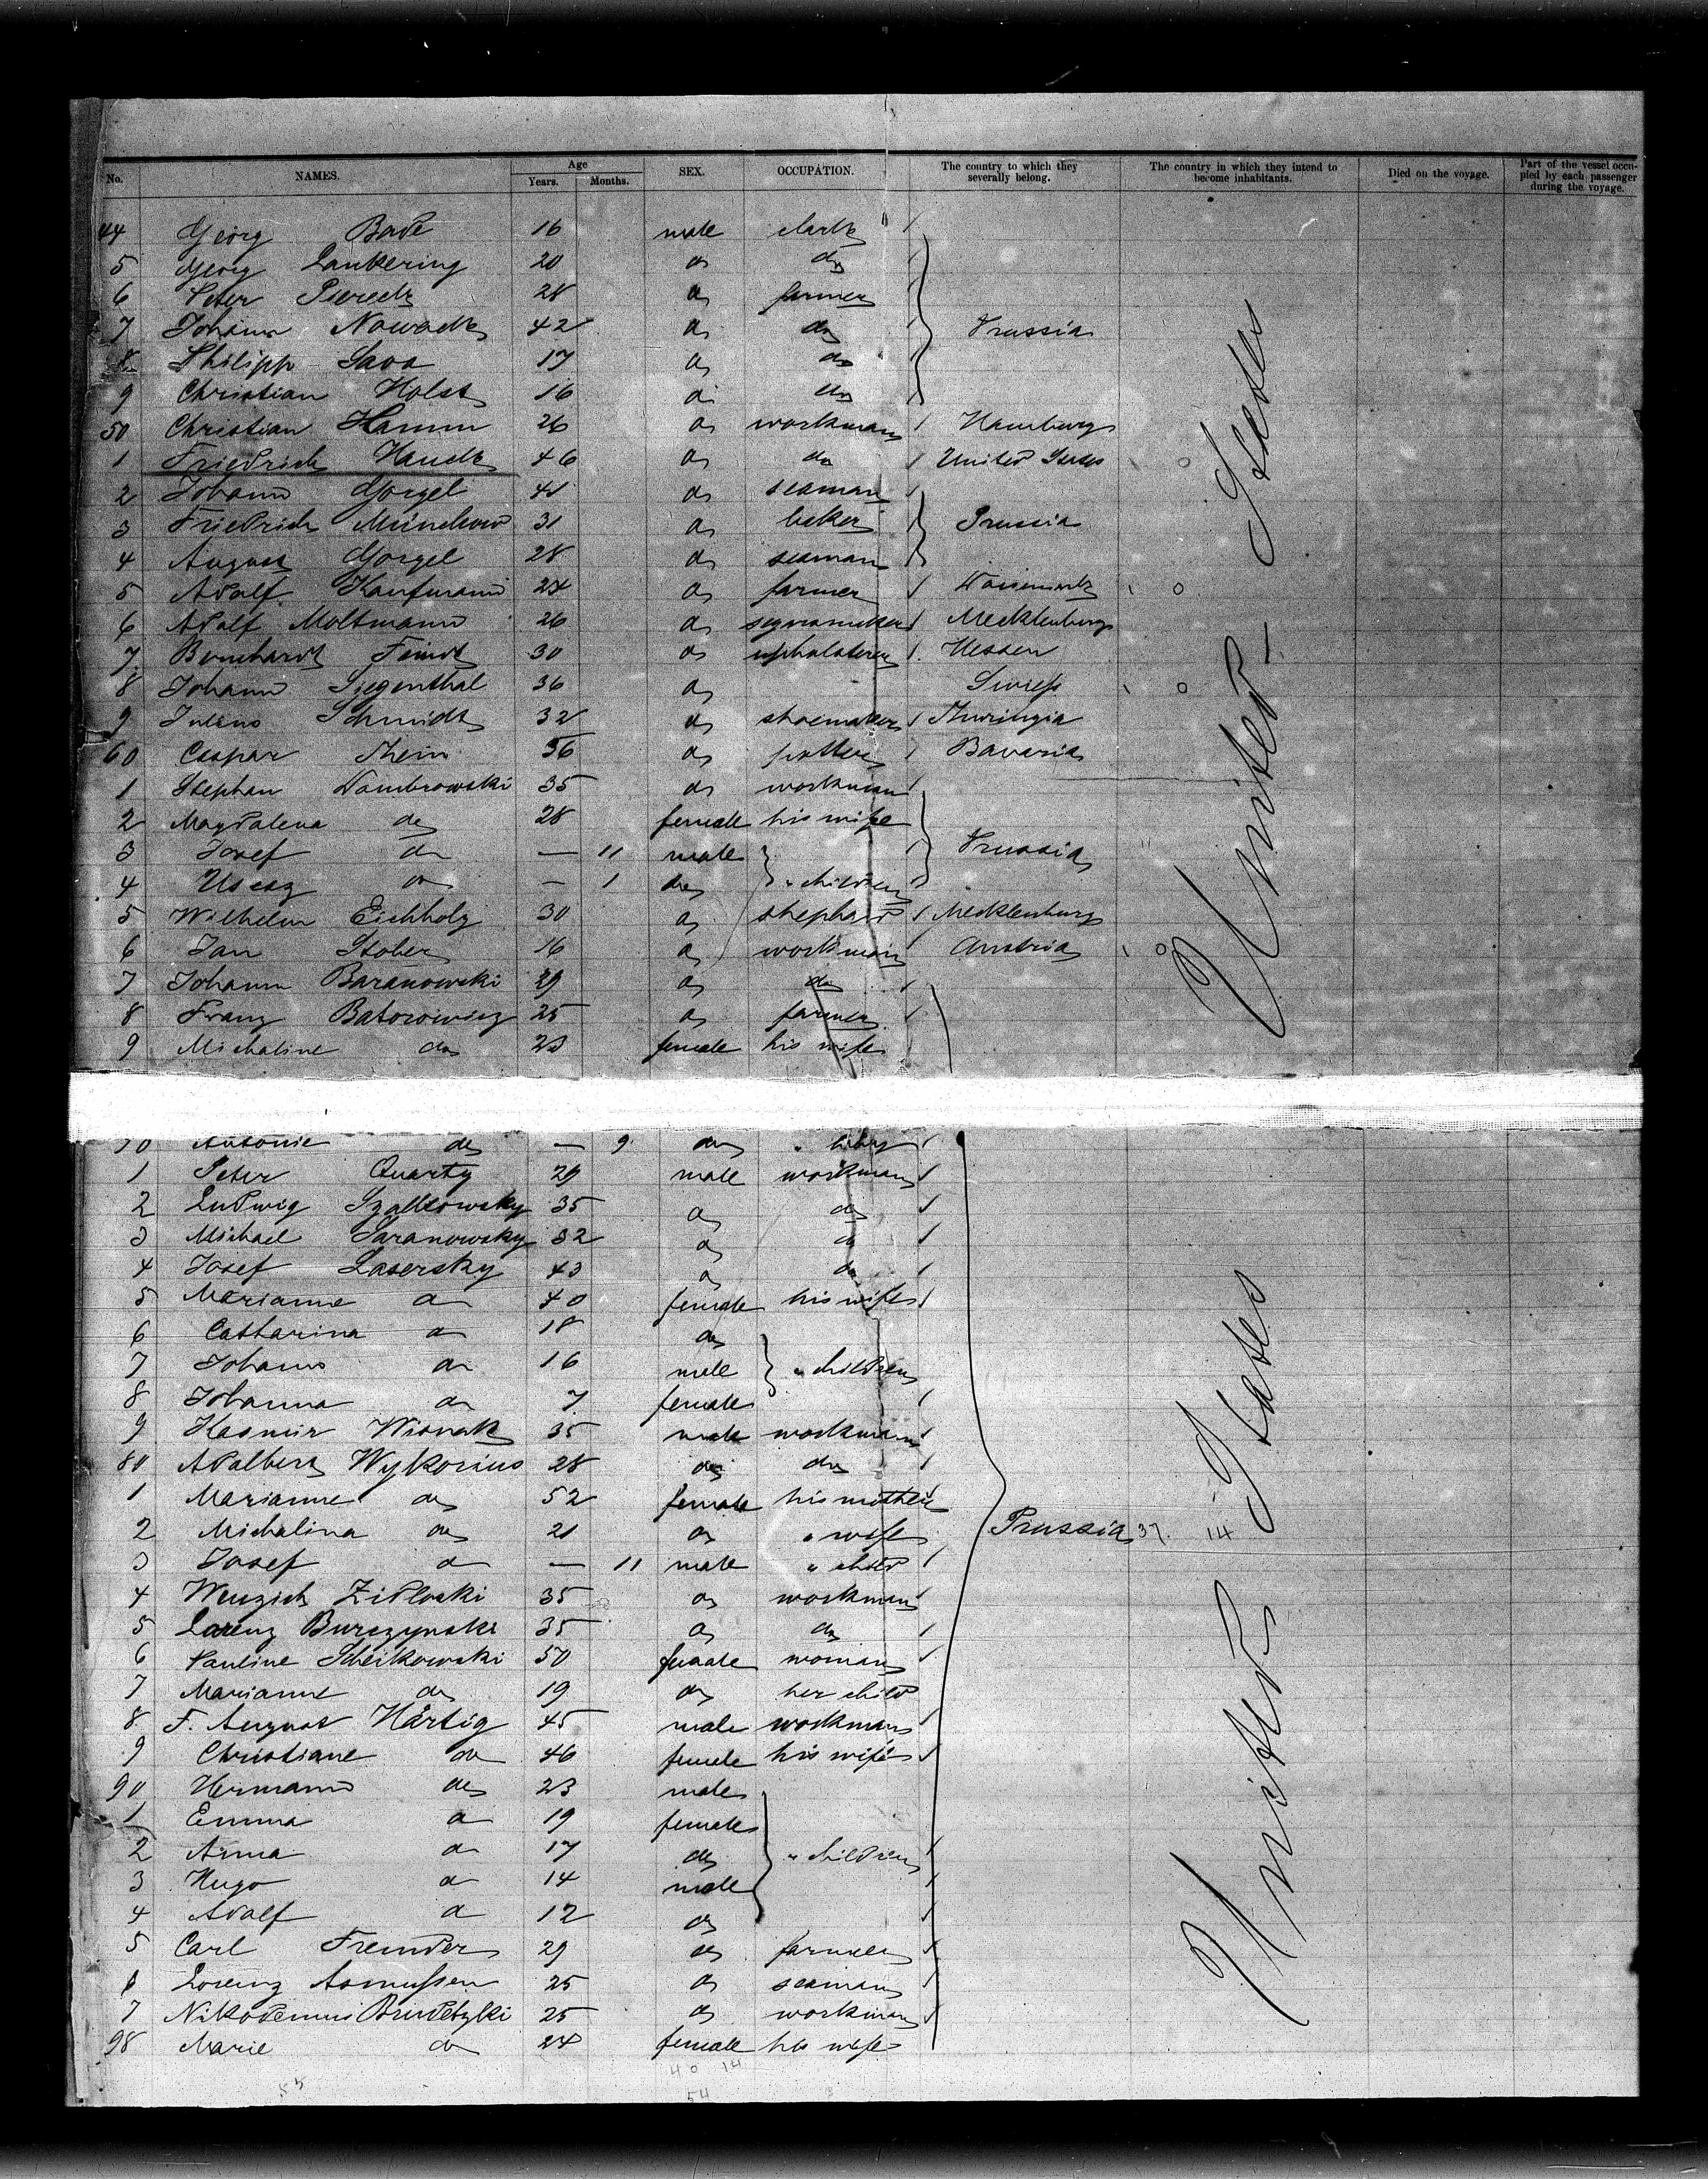 No. NAMES. Age Years. Months. SEX. OCCUPATION. The country to which they severally belong. The country in which they intend to become inhabitants. Died on the voyage. Part of the vessel occupied by each passenger during the voyage.
44 Georg Bade 16 male clark
5 Georg Lankering 20 do do
6 Peter 28 do farmer
7 Johann Nowack 42 do do Prussia
8 Philipp Sava 17 do do
9 Christian Holst 16 do do
50 Christian Hamm 26 do workman Hamburg
1 Friedrich Hauck 46 do do United States
2 Johann Gorgel 41 do seaman
3 Friedrich Münchow 31 do beker Prussia
4 August Gorgel 28 do seaman
5 Adolf Kaufmann 24 do farmer
6 Adolf Moltmann 26 do Mecklenburg
7 Bernhardt Feindt 30 do upholsterer Hessen
8 Johann Siegenthal 36 do Swiess
9 Julius Schmidt 32 do shoemaker Thuringia
60 Caspar Thein 36 do potter Bavaria
1 Stephan Dombrowski 35 do workman
2 Magdalena do 28 female his wife
3 Josef do — 11 male Prussia
4 do — 1 do " children
5 Wilhelm Eichholz 30 do shephard Mecklenburg
6 Jan Stober 16 do workman Austria
7 Johann Baranowski 29 do do
8 Franz Batorowicz 25 do farmer
9 Michaline do 23 female his wife
United States
70 Antonie do — 9 do " baby
1 Peter Quarty 29 male workman
2 Ludwig 35 do do
3 Michael Saranowsky 32 do do
4 Josef Lasersky 43 do do
5 Marianne do 40 female his wife
6 Catharina do 18 do
7 Johann do 16 male " children
8 Johanna do 7 female
9 Kasmir Wisnak 35 male workman
80 Adalbert Wykorius 28 do do
1 Marianne do 52 female his mother
2 Michalina do 21 do " wife Prussia 37. 14
3 Josef do — 11 male " child
4 Zidloski 35 do workman
5 Lorenz Burczynski 35 do do
6 Pauline Scheikowski 50 female woman
7 Marianne do 19 do her child
8 F. August Härtig 45 male workman
9 Christiane do 46 female his wife
90 Hermann do 23 male
1 Emma do 19 female
2 Anna do 17 do " children
3 Hugo do 14 male
4 Adolf do 12 do
5 Carl Fremder 29 do farmer
6 Lorenz Asmussen 25 do seaman
7 Nikodemus 25 do workman
98 Marie do 24 female his wife
United States
40 14
55
54